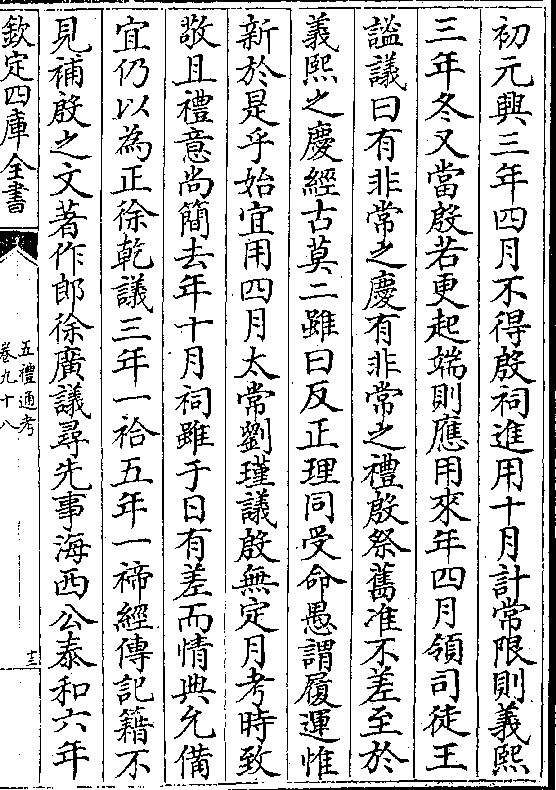 初元興三年四月不得殷祠進用十月計常限則義熙
三年冬又當殷若更起端則應用來年四月領司徒王
謐議曰有非常之慶有非常之禮殷祭舊准不差至於
義熙之慶經古莫二雖曰反正理同受命愚謂履運惟
新於是乎始宜用四月太常劉瑾議殷無定月考時致
敬且禮意尚簡去年十月祠雖于日有差而情典允備
宜仍以為正徐乾議三年一祫五年一禘經傳記籍不
見補殷之文著作郎徐廣議尋先事海西公泰和六年
欽定四庫全書
五禮通考
卷九十八
十三